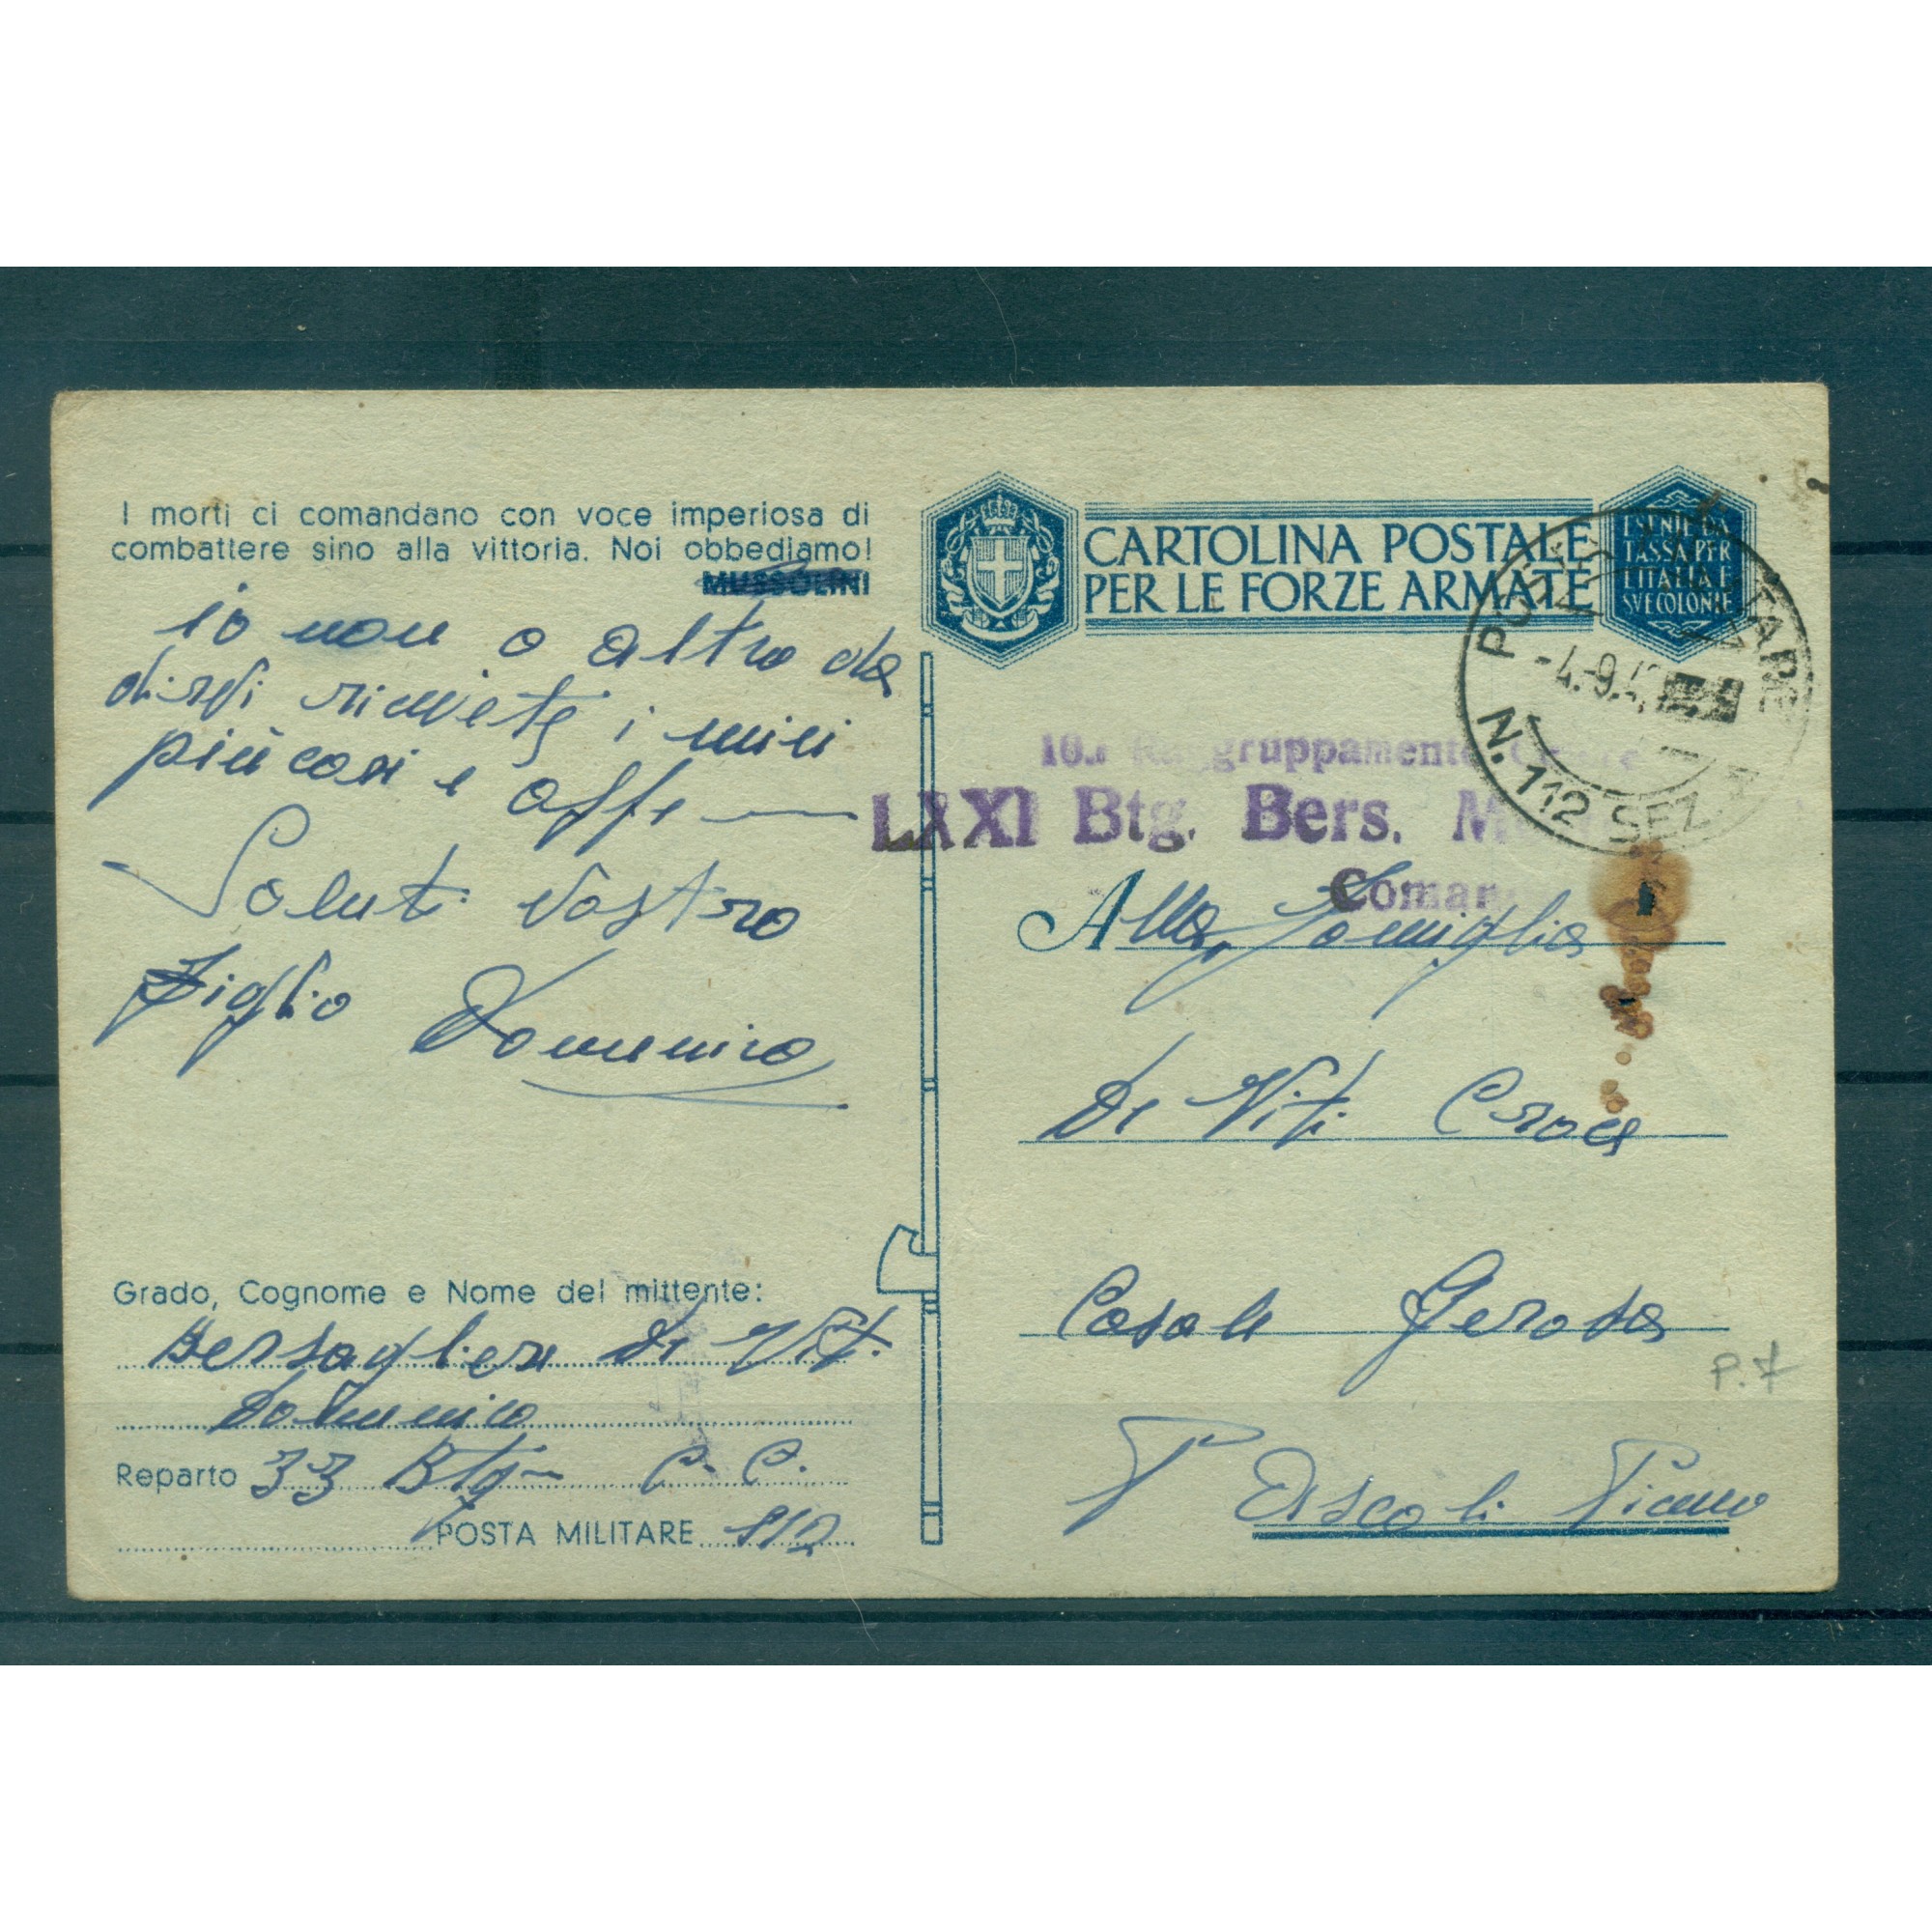 I morti ci comandano con voce imperiosa di
combattere sino alla vittoria. Noi obbediamo!
MUSSOLINI
io non o altro da
dirvi ricevete i miei
più cari e affe
Saluti vostro
Figlio Domenico
Grado, Cognome e Nome del mittente:
Bersagliere De Viti
Domenico
Reparto 33 Btg C. C.
POSTA MILITARE 112
CARTOLINA POSTALE
PER LE FORZE ARMATE
ESENTE DA
TASSA PER
L'ITALIA E
SVE COLONIE
POSTA MILITARE
-4.-9.4
N. 112 SEZ
Raggruppamento
LXXI Btg. Bers.
Coman
Alla Famiglia
De Viti Croce
Casale Gerosa
P. 7
P Ascoli Piceno